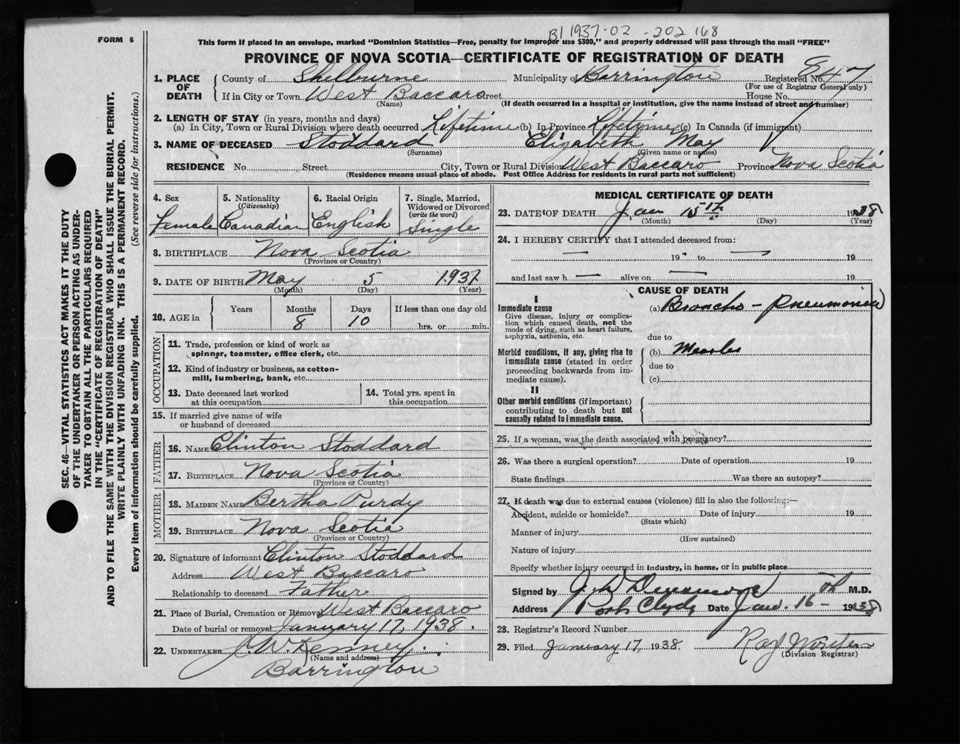 B1 1937-02-202168
FORM 6
This form if placed in an envelope, marked "Dominion Statistics—Free, penalty for improper use $300," and properly addressed will pass through the mail "FREE"
PROVINCE OF NOVA SCOTIA—CERTIFICATE OF REGISTRATION OF DEATH
1. PLACE OF DEATH County of Shelburne Municipality of Barrington Registered No. 847
(For use of Registrar General only)
If in City or Town West Baccaro Street House No.
(Name) (If death occurred in a hospital or institution, give the name instead of street and number)
2. LENGTH OF STAY (in years, months and days)
(a) In City, Town or Rural Division where death occurred Lifetime (b) In Province Lifetime (c) In Canada (if immigrant)
3. NAME OF DECEASED Stoddard Elizabeth May
(Surname) (Given name or names)
RESIDENCE No. Street City, Town or Rural Division West Baccaro Province Nova Scotia
(Residence means usual place of abode. Post Office Address for residents in rural parts not sufficient)
4. Sex Female
5. Nationality (Citizenship) Canadian
6. Racial Origin English
7. Single, Married, Widowed or Divorced (write the word) Single
8. BIRTHPLACE Nova Scotia
(Province or Country)
9. DATE OF BIRTH May 5 1937
(Month) (Day) (Year)
10. AGE in Years Months 8 Days 10 If less than one day old hrs. or min.
OCCUPATION
11. Trade, profession or kind of work as spinner, teamster, office clerk, etc.
12. Kind of industry or business, as cotton-mill, lumbering, bank, etc.
13. Date deceased last worked at this occupation
14. Total yrs. spent in this occupation
15. If married give name of wife or husband of deceased
FATHER
16. Name Clinton Stoddard
17. Birthplace Nova Scotia
(Province or Country)
MOTHER
18. Maiden Name Bertha Purdy
19. Birthplace Nova Scotia
(Province or Country)
20. Signature of informant Clinton Stoddard
Address West Baccaro
Relationship to deceased Father
21. Place of Burial, Cremation or Removal West Baccaro
Date of burial or removal January 17, 1938.
22. UNDERTAKER J. W. Kenney.
(Name and address)
Barrington
MEDICAL CERTIFICATE OF DEATH
23. DATE OF DEATH Jan 15th 1938
(Month) (Day) (Year)
24. I HEREBY CERTIFY that I attended deceased from:
19 to 19
and last saw h alive on 19
CAUSE OF DEATH
I
Immediate cause
Give disease, injury or complication which caused death, not the mode of dying, such as heart failure, asphyxia, asthenia, etc.
(a) Broncho-Pneumonia
due to
Morbid conditions, if any, giving rise to immediate cause (stated in order proceeding backwards from immediate cause).
(b) Measles
due to
(c)
II
Other morbid conditions (if important) contributing to death but not causally related to immediate cause.
25. If a woman, was the death associated with pregnancy?
26. Was there a surgical operation? Date of operation 19
State findings Was there an autopsy?
27. If death was due to external causes (violence) fill in also the following:—
Accident, suicide or homicide? Date of injury 19
(State which)
Manner of injury
(How sustained)
Nature of injury
Specify whether injury occurred in industry, in home, or in public place
Signed by M.D.
Address Port Clyde Date Jan. 16 1938
28. Registrar's Record Number
29. Filed January 17, 1938.
(Division Registrar)
SEC. 46—VITAL STATISTICS ACT MAKES IT THE DUTY
OF THE UNDERTAKER OR PERSON ACTING AS UNDER-
TAKER TO OBTAIN ALL THE PARTICULARS REQUIRED
IN THE "CERTIFICATE OF REGISTRATION OF DEATH"
AND TO FILE THE SAME WITH THE DIVISION REGISTRAR WHO SHALL ISSUE THE BURIAL PERMIT.
WRITE PLAINLY WITH UNFADING INK. THIS IS A PERMANENT RECORD.
Every item of information should be carefully supplied. (See reverse side for instructions.)